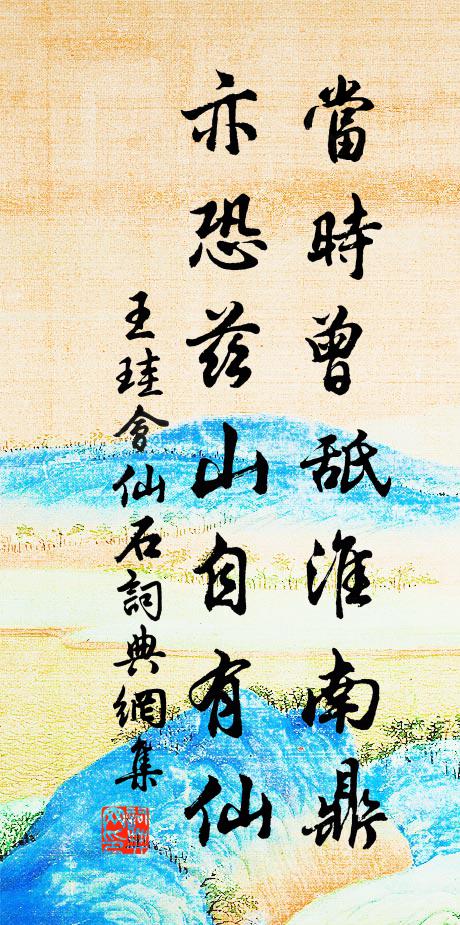 當時曾舐淮南鼎
亦恐茲山自有仙
王珪會仙石詞典網集